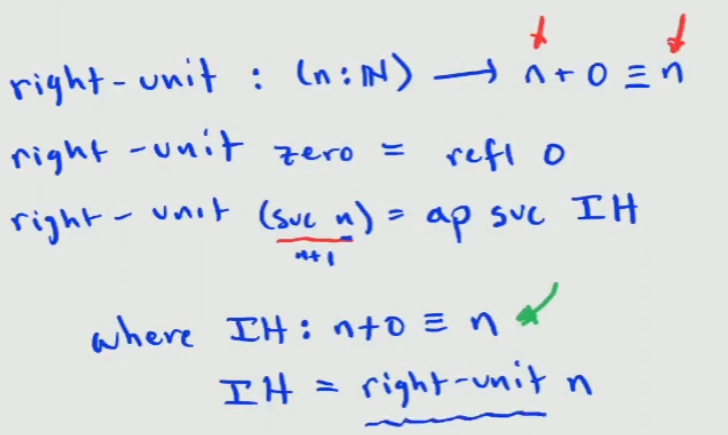 right-unit : (n:ℕ) → n+0 ≡ n
right-unit zero = refl 0
right-unit (suc n) = ap suc IH
n+1
where IH : n+0 ≡ n
IH = right-unit n